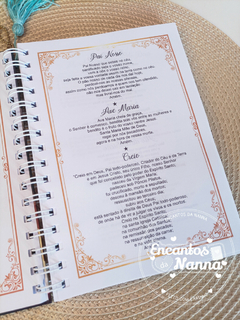 Pai Nosso
Pai Nosso que estais no céu,
santificado seja o vosso nome,
vem a nós o vosso reino,
seja feita a vossa vontade assim na terra como no céu.
O pão nosso de cada dia nos dai hoje,
perdoai-nos as nossas ofensas,
assim como nós perdoamos a quem nos tem ofendido,
não nos deixei cair em tentação
mas livrai-nos do mal.
Amém.
Ave Maria
Ave Maria cheia de graça,
o Senhor é convosco, bendita sois vós entre as mulheres e
bendito é o fruto do vosso ventre Jesus.
Santa Maria Mãe de Deus,
rogai por nós pecadores,
agora e na hora da nossa morte.
Amém.
Creio
Creio em Deus Pai todo-poderoso, Criador do Céu e da Terra
e em Jesus Cristo, seu único Filho, nosso Senhor
que foi concebido pelo poder do Espírito Santo;
nasceu da Virgem Maria,
padeceu sob Pôncio Pilatos,
foi crucificado, morto e sepultado;
desceu à mansão dos mortos;
ressuscitou ao terceiro dia;
subiu aos céus,
está sentado à direita de Deus Pai todo-poderoso
de onde há de vir a julgar os vivos e os mortos;
creio no Espírito Santo,
na santa Igreja Católica,
na comunhão dos Santos,
na remissão dos pecados,
na ressurreição da carne,
Encantos
da Nanna